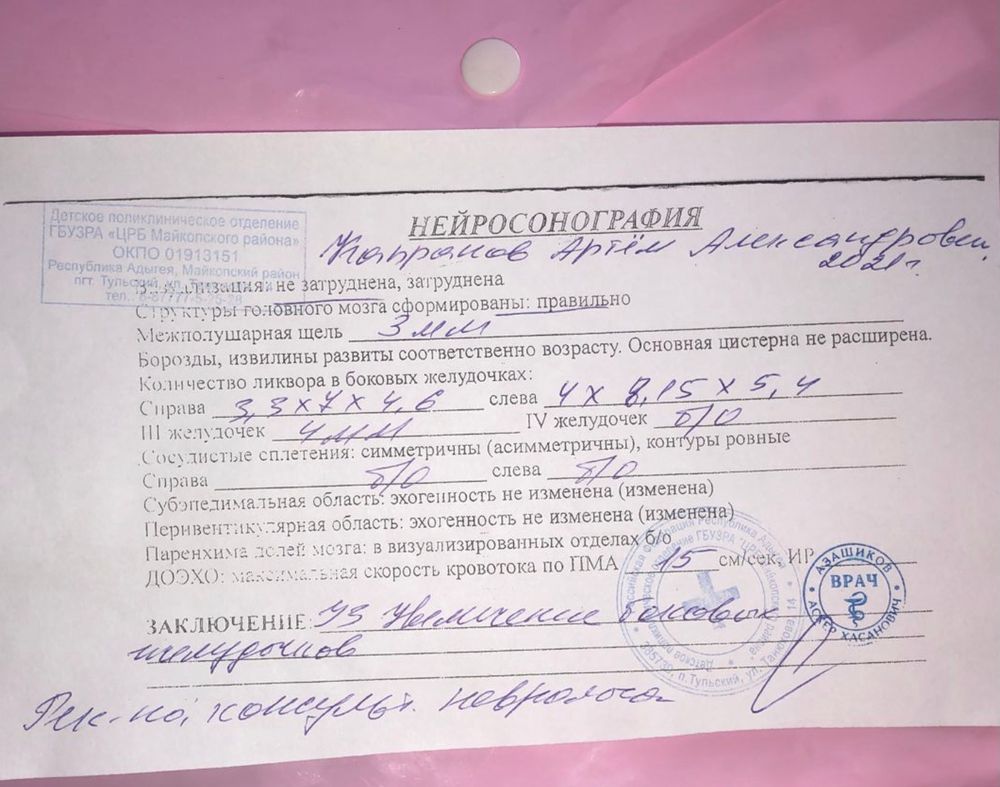 Детское поликлиническое отделение
ГБУЗРА «ЦРБ Майкопского района»
ОКПО 01913151
Республика Адыгея, Майкопский район
пгт. Тульский, ул.
тел.
НЕЙРОСОНОГРАФИЯ
Капранов Артём Александрович,
2021г.
Визуализация: не затруднена, затруднена
Структуры головного мозга сформированы: правильно
Межполушарная щель 3 мм
Борозды, извилины развиты соответственно возрасту. Основная цистерна не расширена.
Количество ликвора в боковых желудочках:
Справа 3,3 х 7 х 4,6 слева 4 х 8,15 х 5,4
III желудочек 4 мм IV желудочек б/о
Сосудистые сплетения: симметричны (асимметричны), контуры ровные
Справа б/о слева б/о
Субэпедимальная область: эхогенность не изменена (изменена)
Перивентикулярная область: эхогенность не изменена (изменена)
Паренхима долей мозга: в визуализированных отделах б/о
ДОЭХО: максимальная скорость кровотока по ПМА 15 см/сек. ИР
ЗАКЛЮЧЕНИЕ: УЗ Увеличение боковых
желудочков
Рек-но, консульт. невролога
АЗАШИКОВ
ВРАЧ
АСКЕР ХАСАНОВИЧ